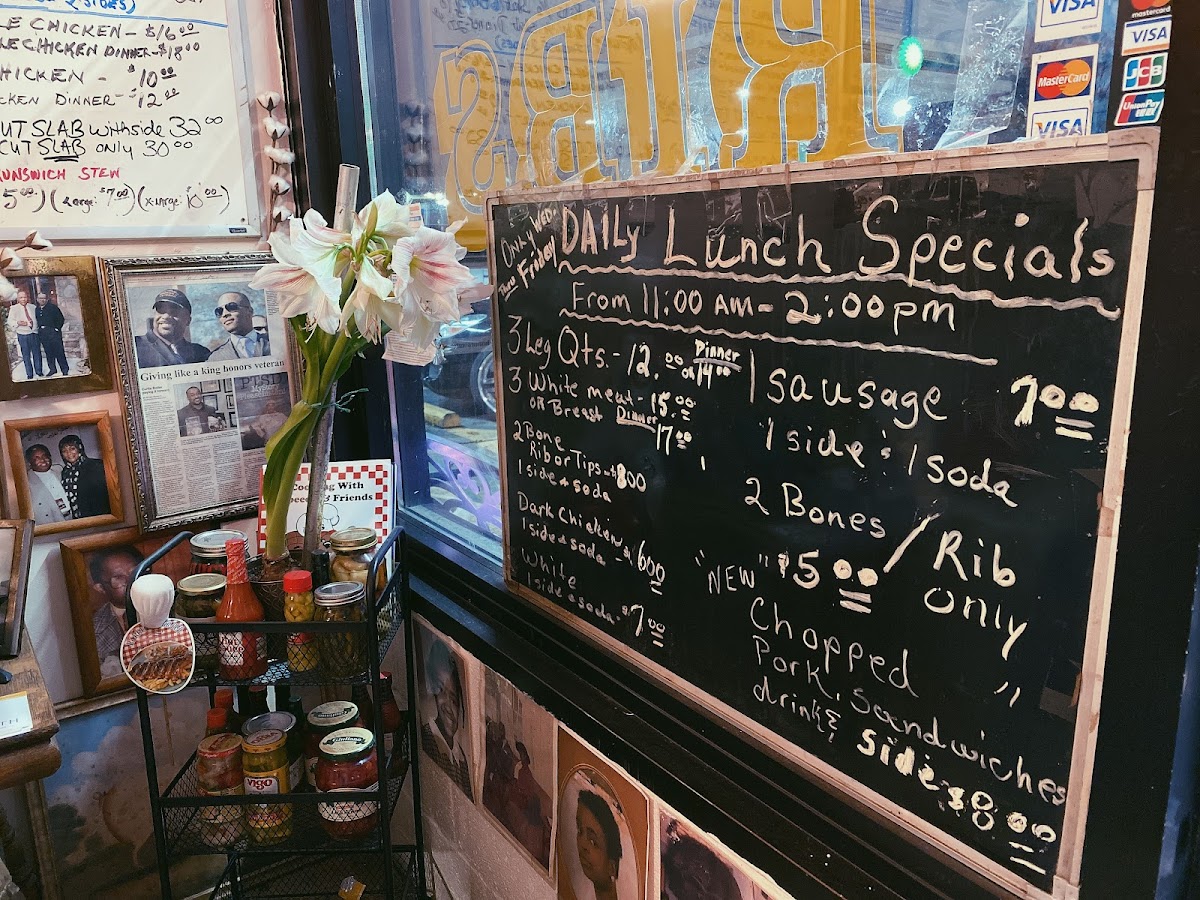 LE CHICKEN - $16.00
LE CHICKEN DINNER - $18.00
HICKEN - $10.00
CKEN DINNER - $12.00
CUT SLAB with side 32.00
CUT SLAB only 30.00
UNSWICK STEW
5.00) (Large: $7.00) (X-Large: 10.00)
RIBS
VISA
MasterCard
VISA
mastercard
VISA
JCB
UnionPay
Only Wed-
Thru Friday
DAILY Lunch Specials
From 11:00 AM - 2:00 pm
3 Leg Qts. - 12.00 or Dinner 14.00
3 White meat - 15.00
OR Breast Dinner 17.00
2 Bone
Rib or Tips - $8.00
1 side & soda
Dark Chicken $6.00
1 side & soda
White
1 side & soda - $7.00
1 sausage 7.00
1 side & 1 soda
2 Bones / Rib only
"NEW" $5.00
Chopped "
Pork, sandwiches
drink &
side $8.00
Giving like a king honors veteran
PTSD
Cooking With
& Friends
Vigo
Giuliano